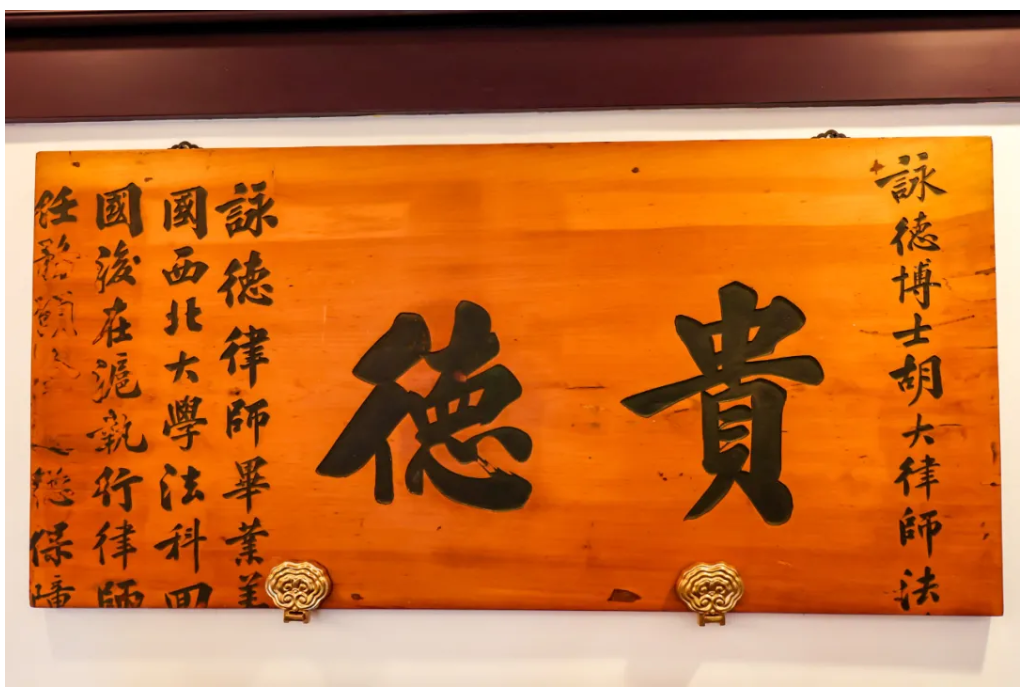 詠德博士胡大律師法
貴德
詠德律師畢業美
國西北大學法科回
國後在滬執行律師
任 保障